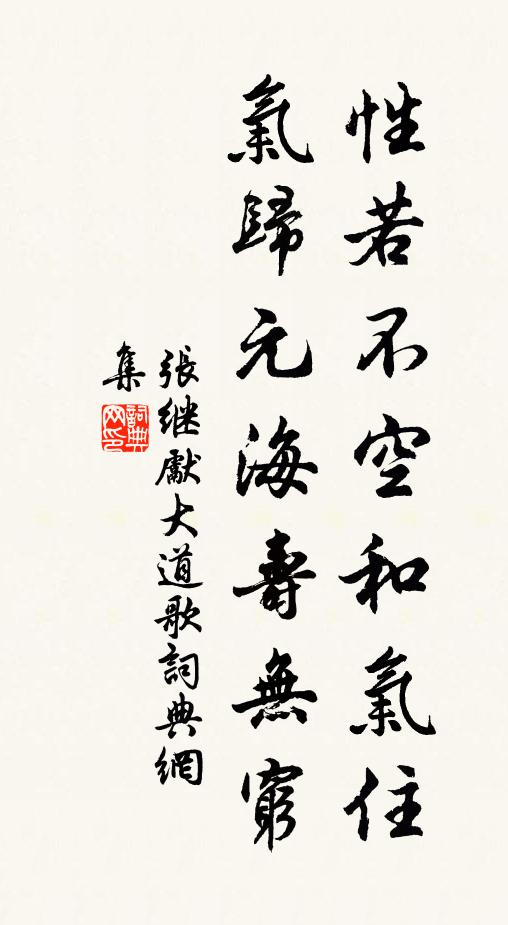 性若不空和氣住
氣歸元海壽無窮
張继勮大道歌詞典網
集
詞典
网印